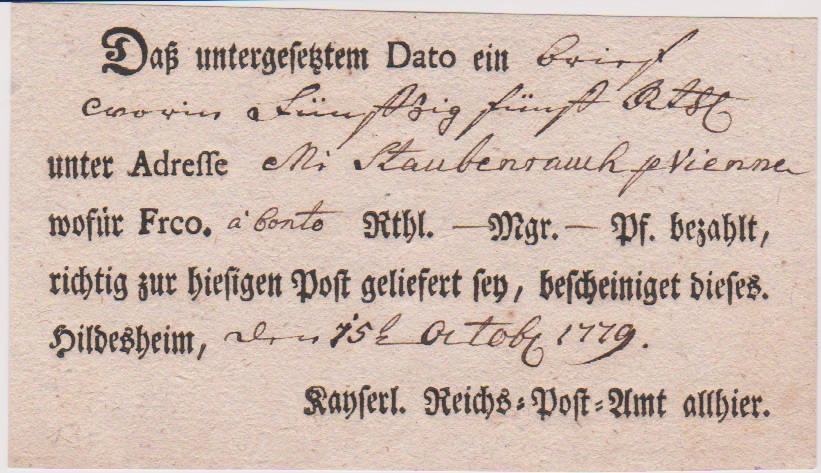 Daß untergesetztem Dato ein brief
worin Fünffzig fünff Rthl
unter Adresse Mr Staubenrauch p Vienne
wofür Frco. a Conto Rthl. — Mgr. — Pf. bezahlt,
richtig zur hiesigen Post geliefert sey, bescheiniget dieses.
Hildesheim, den 15t Octobr 1779.
Kayserl. Reichs-Post-Amt allhier.